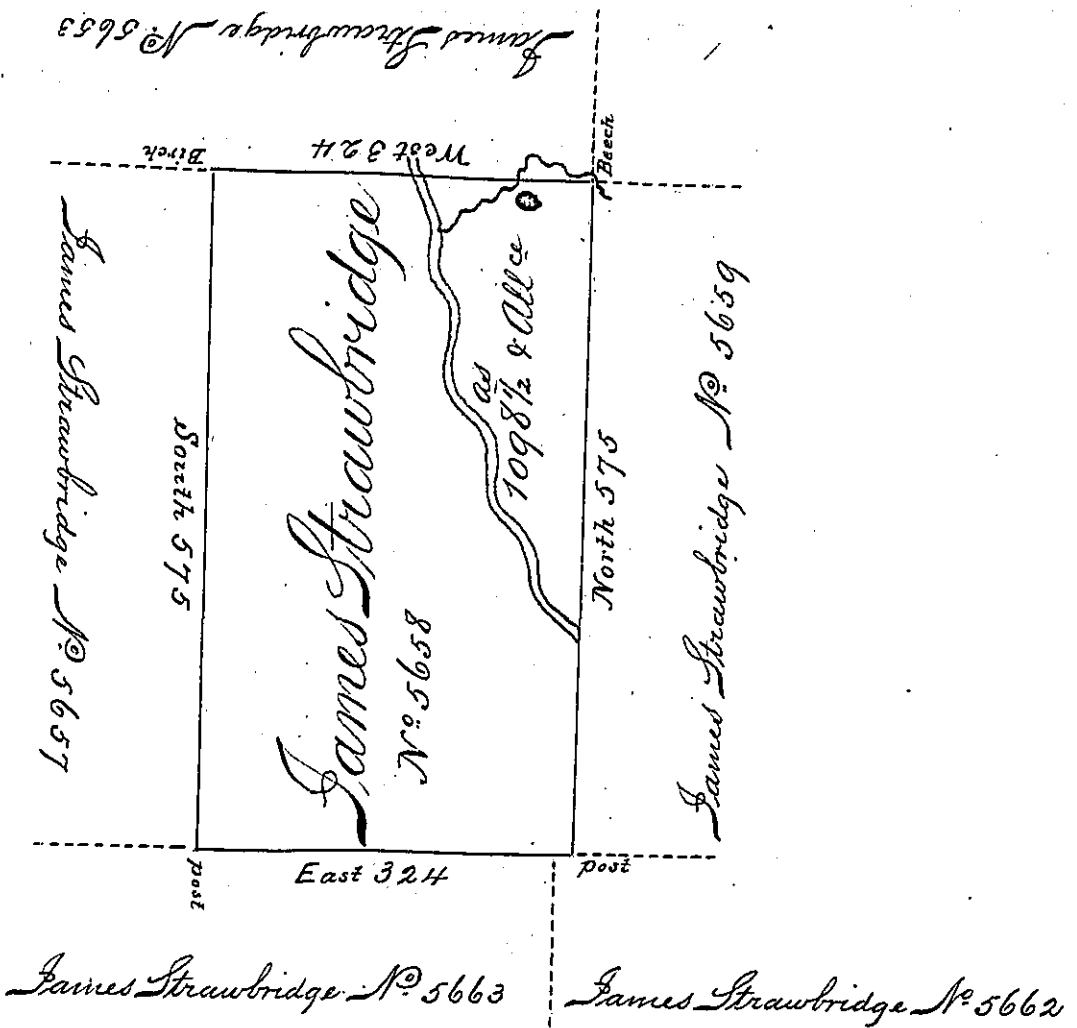 James Strawbridge Nº 5653
Birch
West 324
Beech
James Strawbridge Nº 5657
South 575
James Strawbridge
Nº 5658
as
1098 1/2 & Allce
North 575
James Strawbridge Nº 5659
post
East 324
post
James Strawbridge Nº 5663
James Strawbridge Nº 5662